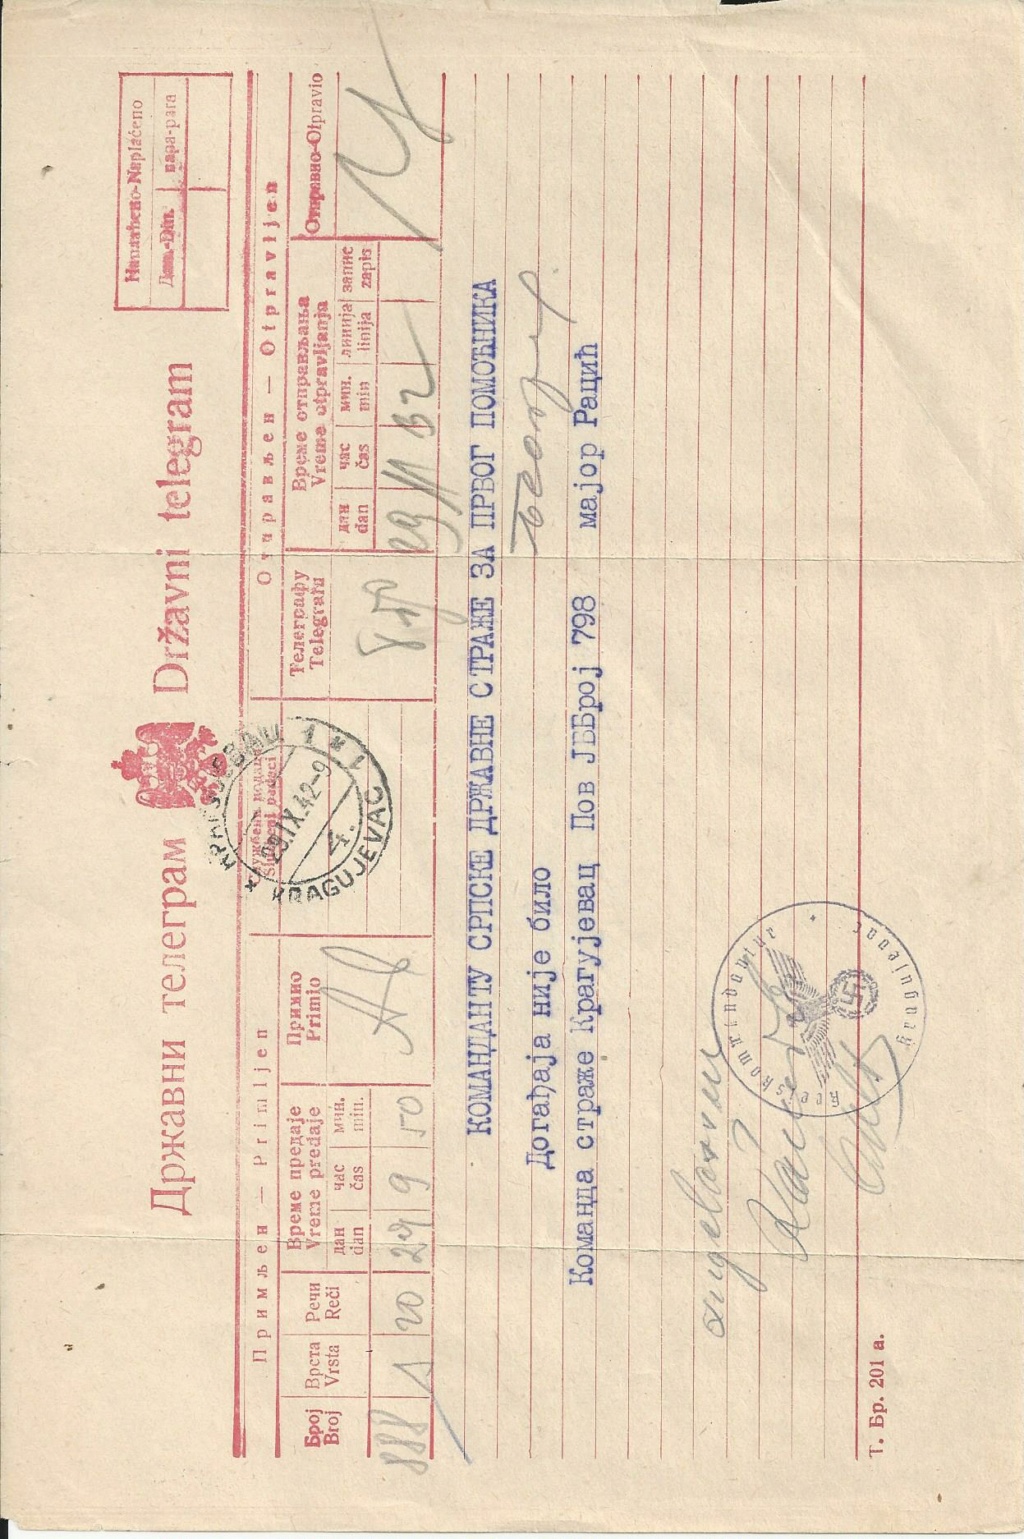 Државни телеграм Državni telegram
Наплаћено-Naplaćeno
Дин.-Din. пара-para
Примљен — Primljen
Отправљен — Otpravljen
Број
Broj
Врста
Vrsta
Речи
Reči
Време предаје
Vreme predaje
дан
dan
час
čas
мин.
min.
Примио
Primio
Службени подаци
Službeni podaci
Телеграфу
Telegrafu
Време отправљања
Vreme otpravljanja
дан
dan
час
čas
мин.
min
линија
linija
запис
zapis
Отправио-Otpravio
888 20 29 9 50
29 11 32
КРАГУЈЕВАЦ 1
29.IX.42-9
4.
KRAGUJEVAC 1
КОМАНДАНТУ СРПСКЕ ДРЖАВНЕ СТРАЖЕ ЗА ПРВОГ ПОМОЋНИКА
Београд
Догађаја није било
Команда страже Крагујевац Пов ЈББрој 798 мајор Рацић
Kreiskommandantur
Kragujevac
Т. Бр. 201 а.